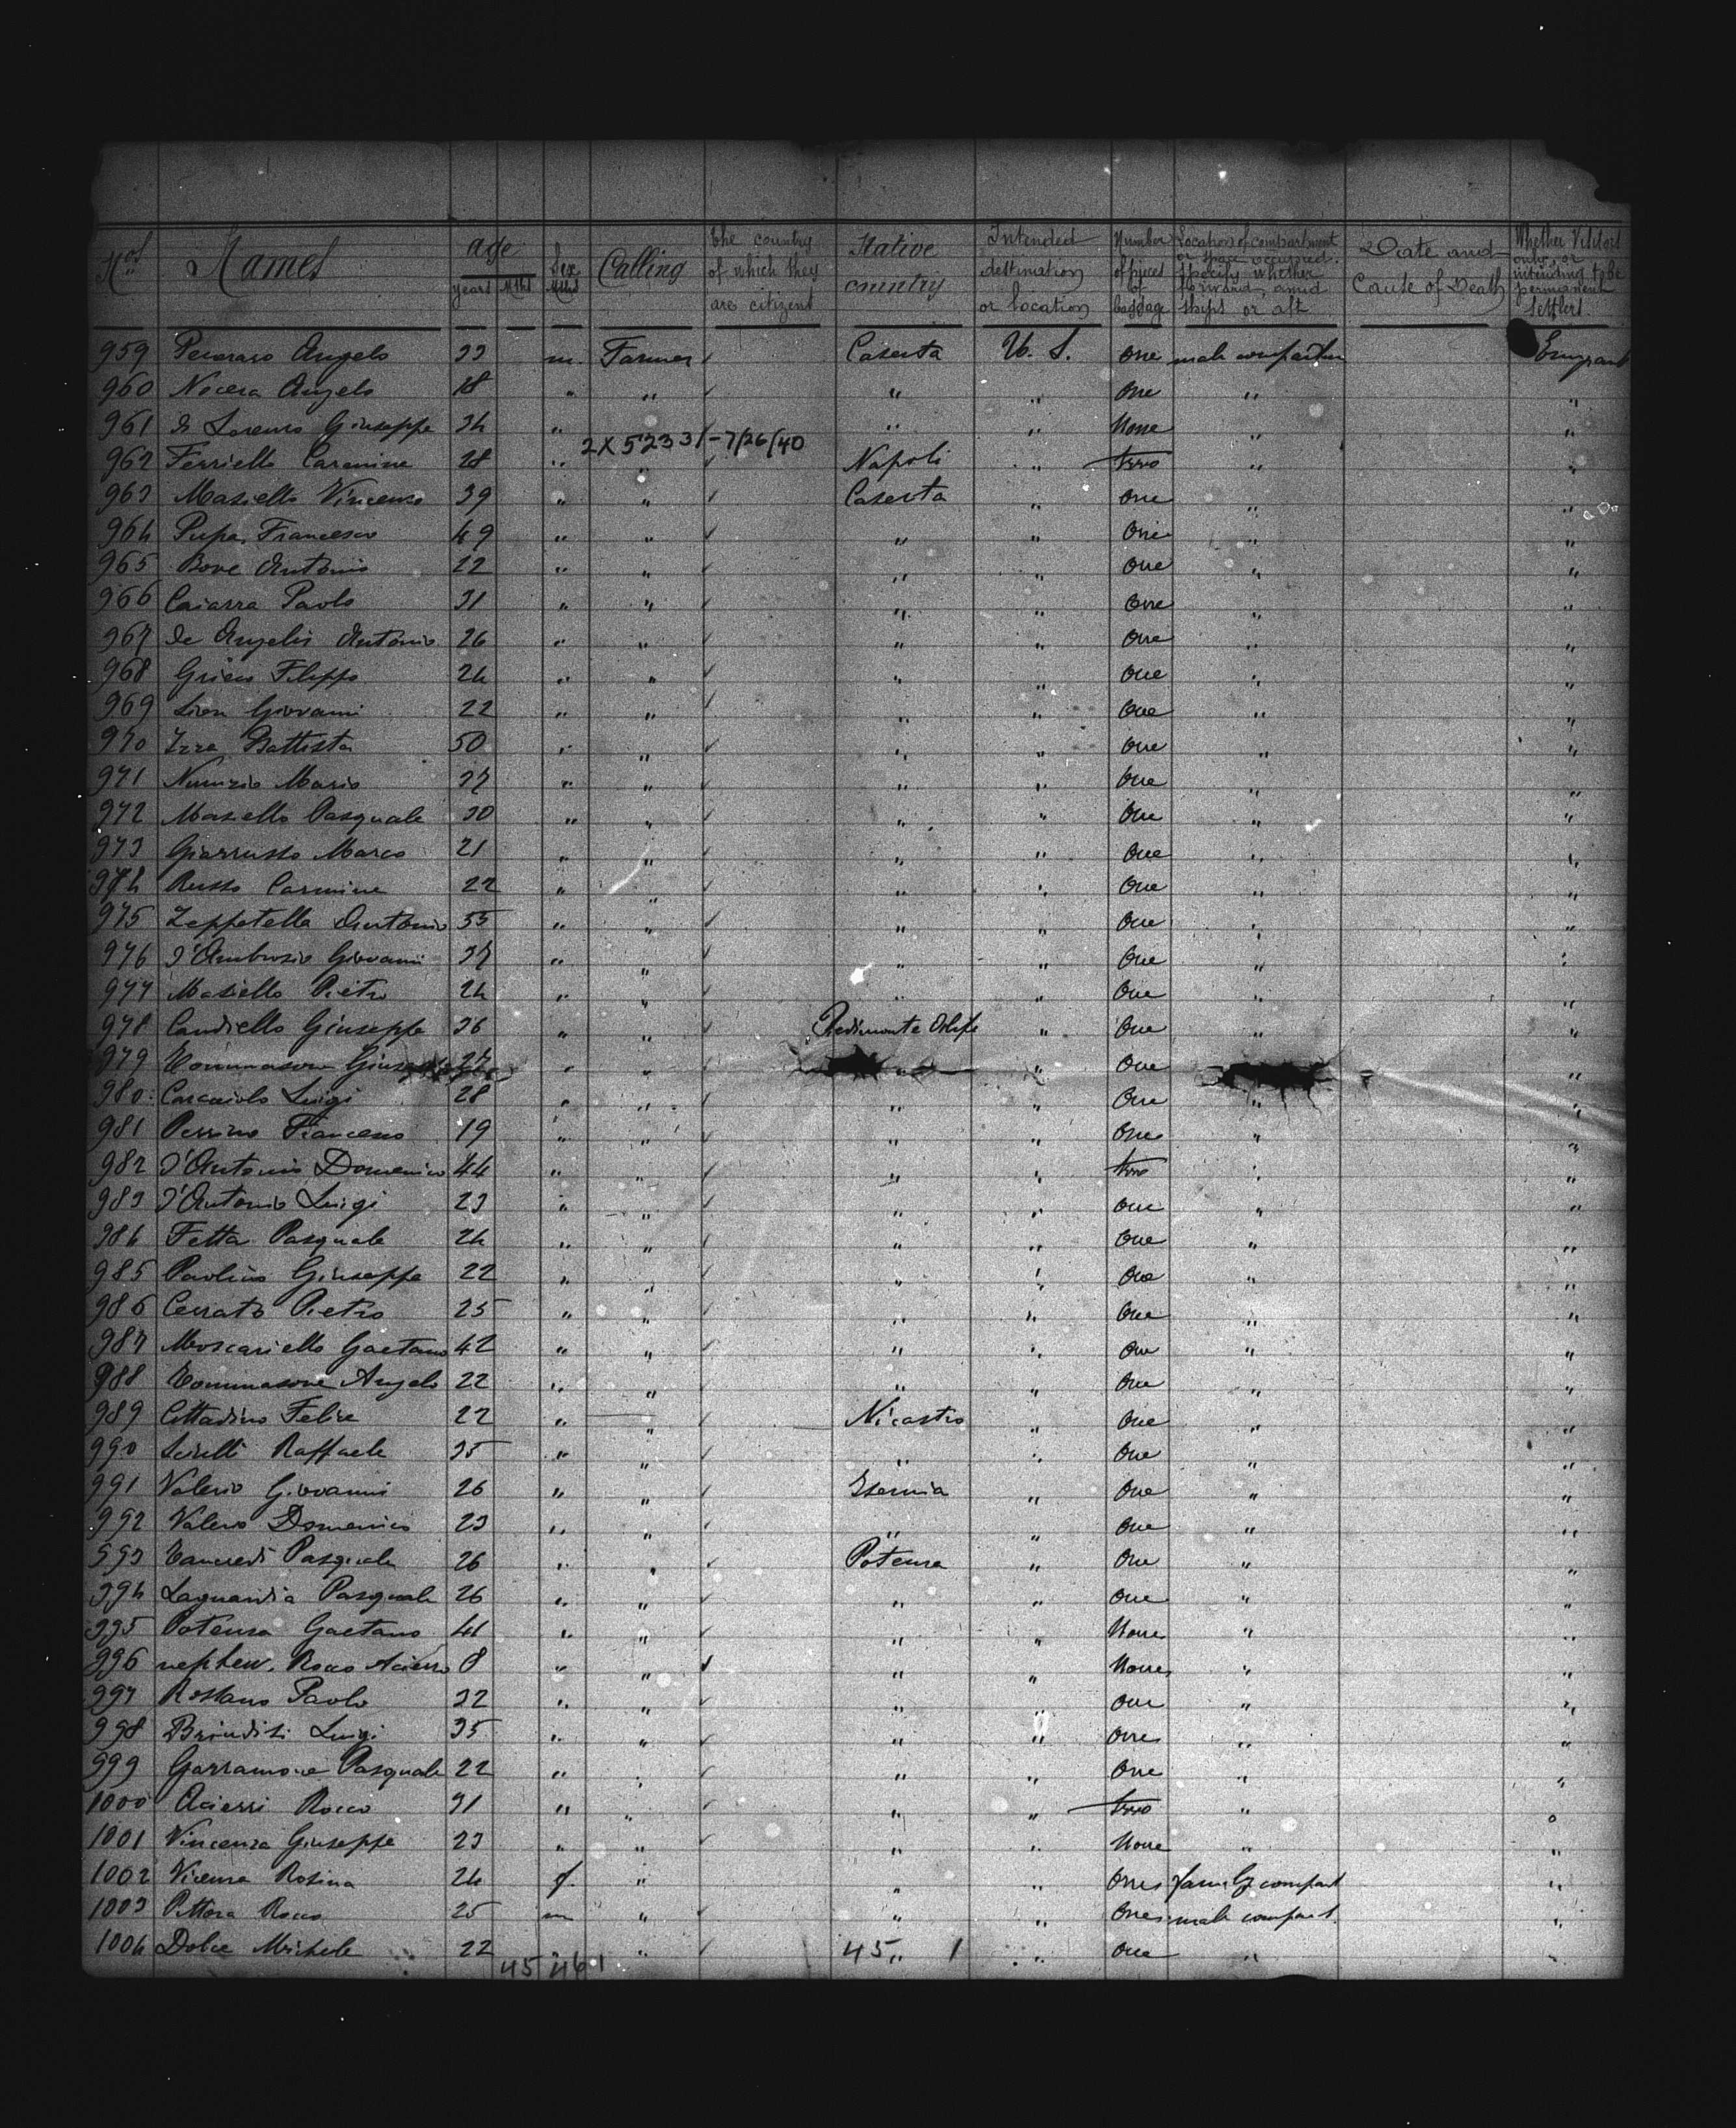 Nos Names age years Mths Sex Calling the country of which they are citizens Native country Intended destination or location Number of pieces of baggage Location of compartment or space occupied. Specify whether forward, amid ships or aft Date and Cause of Death Whether Visitors only or intending to be permanent Settlers.
959 Pecoraro Angelo 33 m. Farmer Caserta U. S. One male Emigrant
960 Nocera Angelo 18 " " " " One " "
961 Lorenzo Giuseppe 34 " " " None " "
2X52331-7/26/40
962 Ferriello Carmine 28 " " Napoli " two " "
963 Masiello Vincenzo 39 " " Caserta " One " "
964 Pupa Francesco 49 " " " " One " "
965 Bove Antonio 22 " " " " One " "
966 Caiazza Paolo 31 " " " " One " "
967 de Angelis Antonio 26 " " " " One " "
968 Filippo 24 " " " " One " "
969 Giovanni 22 " " " " One " "
970 Izza Battista 50 " " " " One " "
971 Nunzio Mario 37 " " " " One " "
972 Masiello Pasquale 30 " " " " One " "
973 Giarrusso Marco 21 " " " " One " "
974 Russo Carmine 22 " " " " One " "
975 Zeppetella Antonio 55 " " " " One " "
976 d'Ambrosio Giovanni 37 " " " " One " "
977 Masiello Pietro 24 " " " " One " "
978 Candiello Giuseppe 36 " " Piedimonte " One " "
979 Tommasone 27 " " " " One "
980 Caracciolo Luigi 28 " " " " One " "
981 Perrino Francesco 19 " " " " One " "
982 d'Antonio Domenico 44 " " " " two " "
983 d'Antonio Luigi 23 " " " " One " "
984 Fetta Pasquale 24 " " " " One " "
985 Paolino Giuseppe 22 " " " " One " "
986 Cerrato Pietro 25 " " " " One " "
987 Moscariello Gaetano 42 " " " " One " "
988 Tommasone Angelo 22 " " " " One " "
989 Cittadino Felice 22 " " Nicastro " One " "
990 Raffaele 35 " " " " One " "
991 Valerio Giovanni 26 " " Isernia " One " "
992 Valerio Domenico 23 " " " " One " "
993 Tancredi Pasquale 26 " " Potenza " One " "
994 Laguardia Pasquale 26 " " " " One " "
995 Potenza Gaetano 41 " " " " None " "
996 nephew. Rocco Acierro 8 " " " " None " "
997 Rossano Paolo 32 " " " " One " "
998 Brindisi Luigi 35 " " " " One " "
999 Garramone Pasquale 22 " " " " One " "
1000 Acierri Rocco 31 " " " " two " "
1001 Vincenza Giuseppe 23 " " " " None " "
1002 Rosina 24 f. " " " One family compart "
1003 Rocco 25 m " " " One male compart. "
1004 Dolce Michele 22 " 45 " 1 " One " "
45 46 1